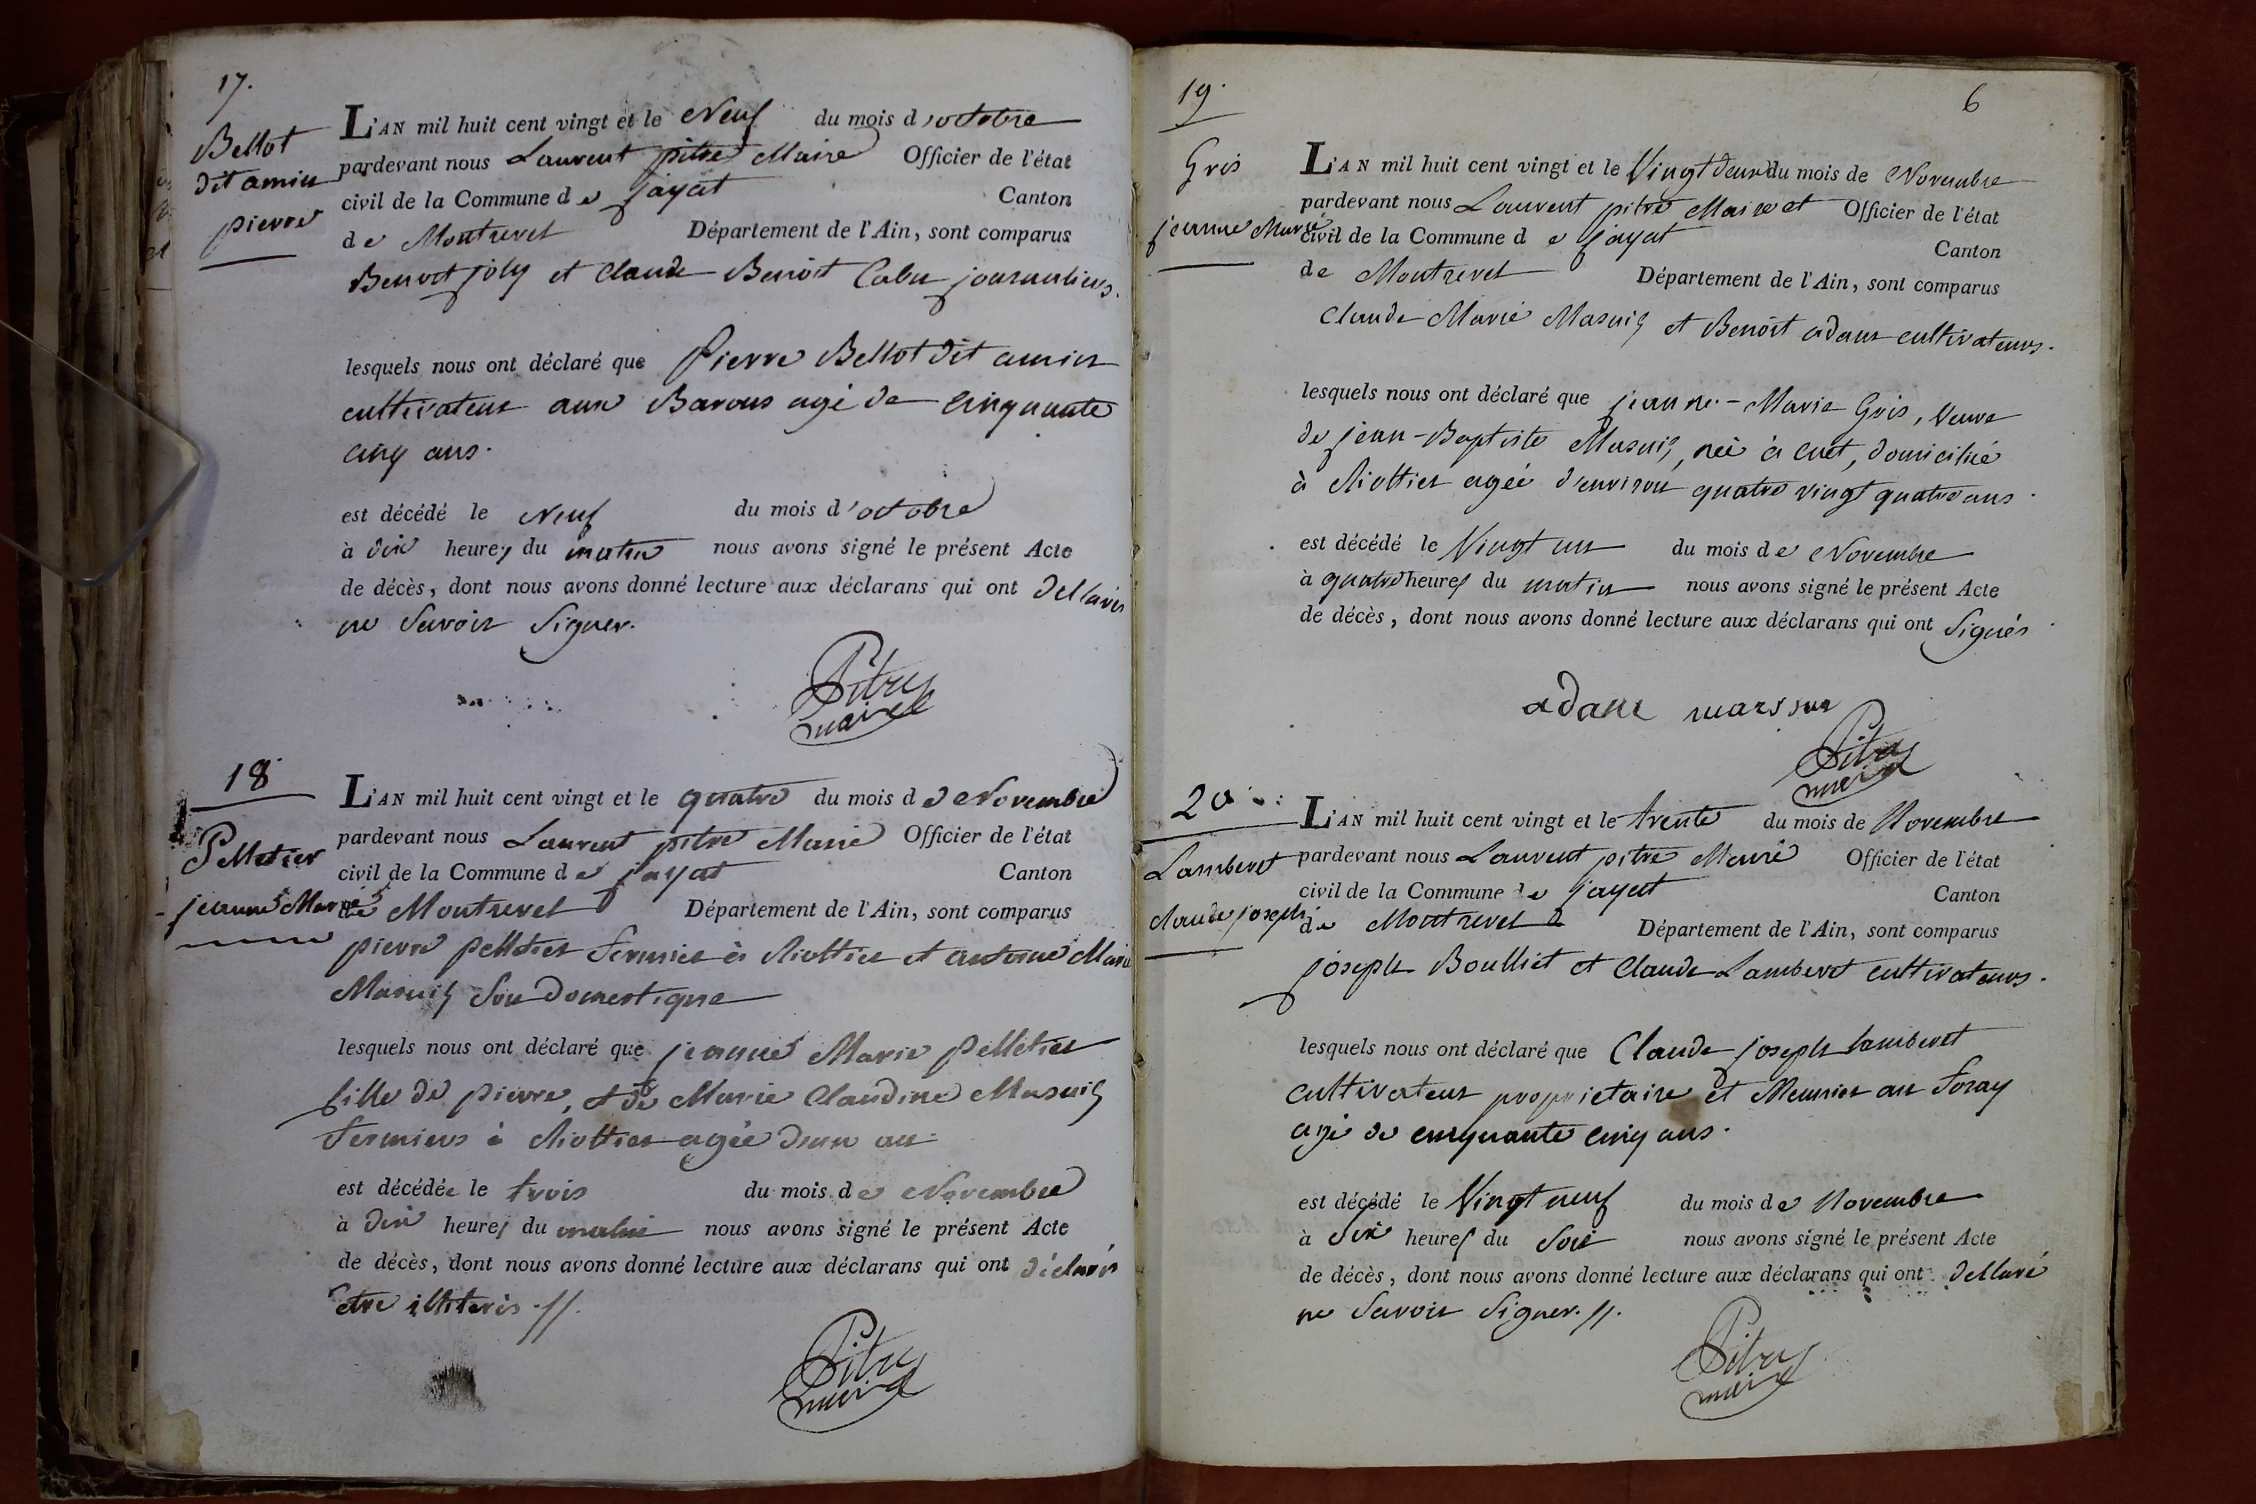 17.
Bellot
dit amiu
pierre
L'AN mil huit cent vingt et le Neuf du mois d'octobre
pardevant nous Laurent pitre Maire Officier de l'état
civil de la Commune de jayat Canton
de Montrevel Département de l'Ain, sont comparus
Benoit joly et Claude Benoit Cabu journaliers.
lesquels nous ont déclaré que Pierre Bellot dit amiet
cultivateur aux Barous agé de cinquante
cinq ans.
est décédé le Neuf du mois d'octobre
à dix heures du matin nous avons signé le présent Acte
de décès, dont nous avons donné lecture aux déclarans qui ont dellarés
ne Savoir Signer.
Pitre
maire
18
Pelletier
jeanne Marie
L'AN mil huit cent vingt et le quatre du mois de Novembre
pardevant nous Laurent pitre Maire Officier de l'état
civil de la Commune de jayat Canton
de Montrevel Département de l'Ain, sont comparus
pierre pelletier fermier à Riottier et antoine Marie
Masuis Son Domestique
lesquels nous ont déclaré que jeanne Marie pelletier
fille de pierre, et de Marie Claudine Masuis
fermiers à Riottier agée d'un an
est décédée le trois du mois de Novembre
à dix heures du matin nous avons signé le présent Acte
de décès, dont nous avons donné lecture aux déclarans qui ont déclarés
etre illiterés.//.
Pitre
maire
6
19.
Gris
jeanne Marie
L'AN mil huit cent vingt et le Vingt deux du mois de Novembre
pardevant nous Laurent pitre Maire et Officier de l'état
civil de la Commune de jayat Canton
de Montrevel Département de l'Ain, sont comparus
Claude Marie Masuis et Benoit adam cultivateurs.
lesquels nous ont déclaré que jeanne-Marie Gris, veuve
de jean-Baptiste Masuis, née à cuet, domicilié
à Riottier agée d'environ quatre vingt quatre ans.
est décédé le Vingt un du mois de Novembre
à quatre heures du matin nous avons signé le présent Acte
de décès, dont nous avons donné lecture aux déclarans qui ont Signés
adam
Pitre
maire
20
Lamberet
claude joseph
L'AN mil huit cent vingt et le trente du mois de Novembre
pardevant nous Laurent pitre Maire Officier de l'état
civil de la Commune de jayat Canton
de Montrevel Département de l'Ain, sont comparus
joseph Boulliet et Claude Lamberet cultivateurs.
lesquels nous ont déclaré que Claude joseph Lamberet
cultivateur proprietaire et Meunier au foray
agé de cinquante cinq ans.
est décédé le Vingt neuf du mois de Novembre
à Six heures du Soir nous avons signé le présent Acte
de décès, dont nous avons donné lecture aux déclarans qui ont dellaré
ne Savoir Signer.//.
Pitre
maire